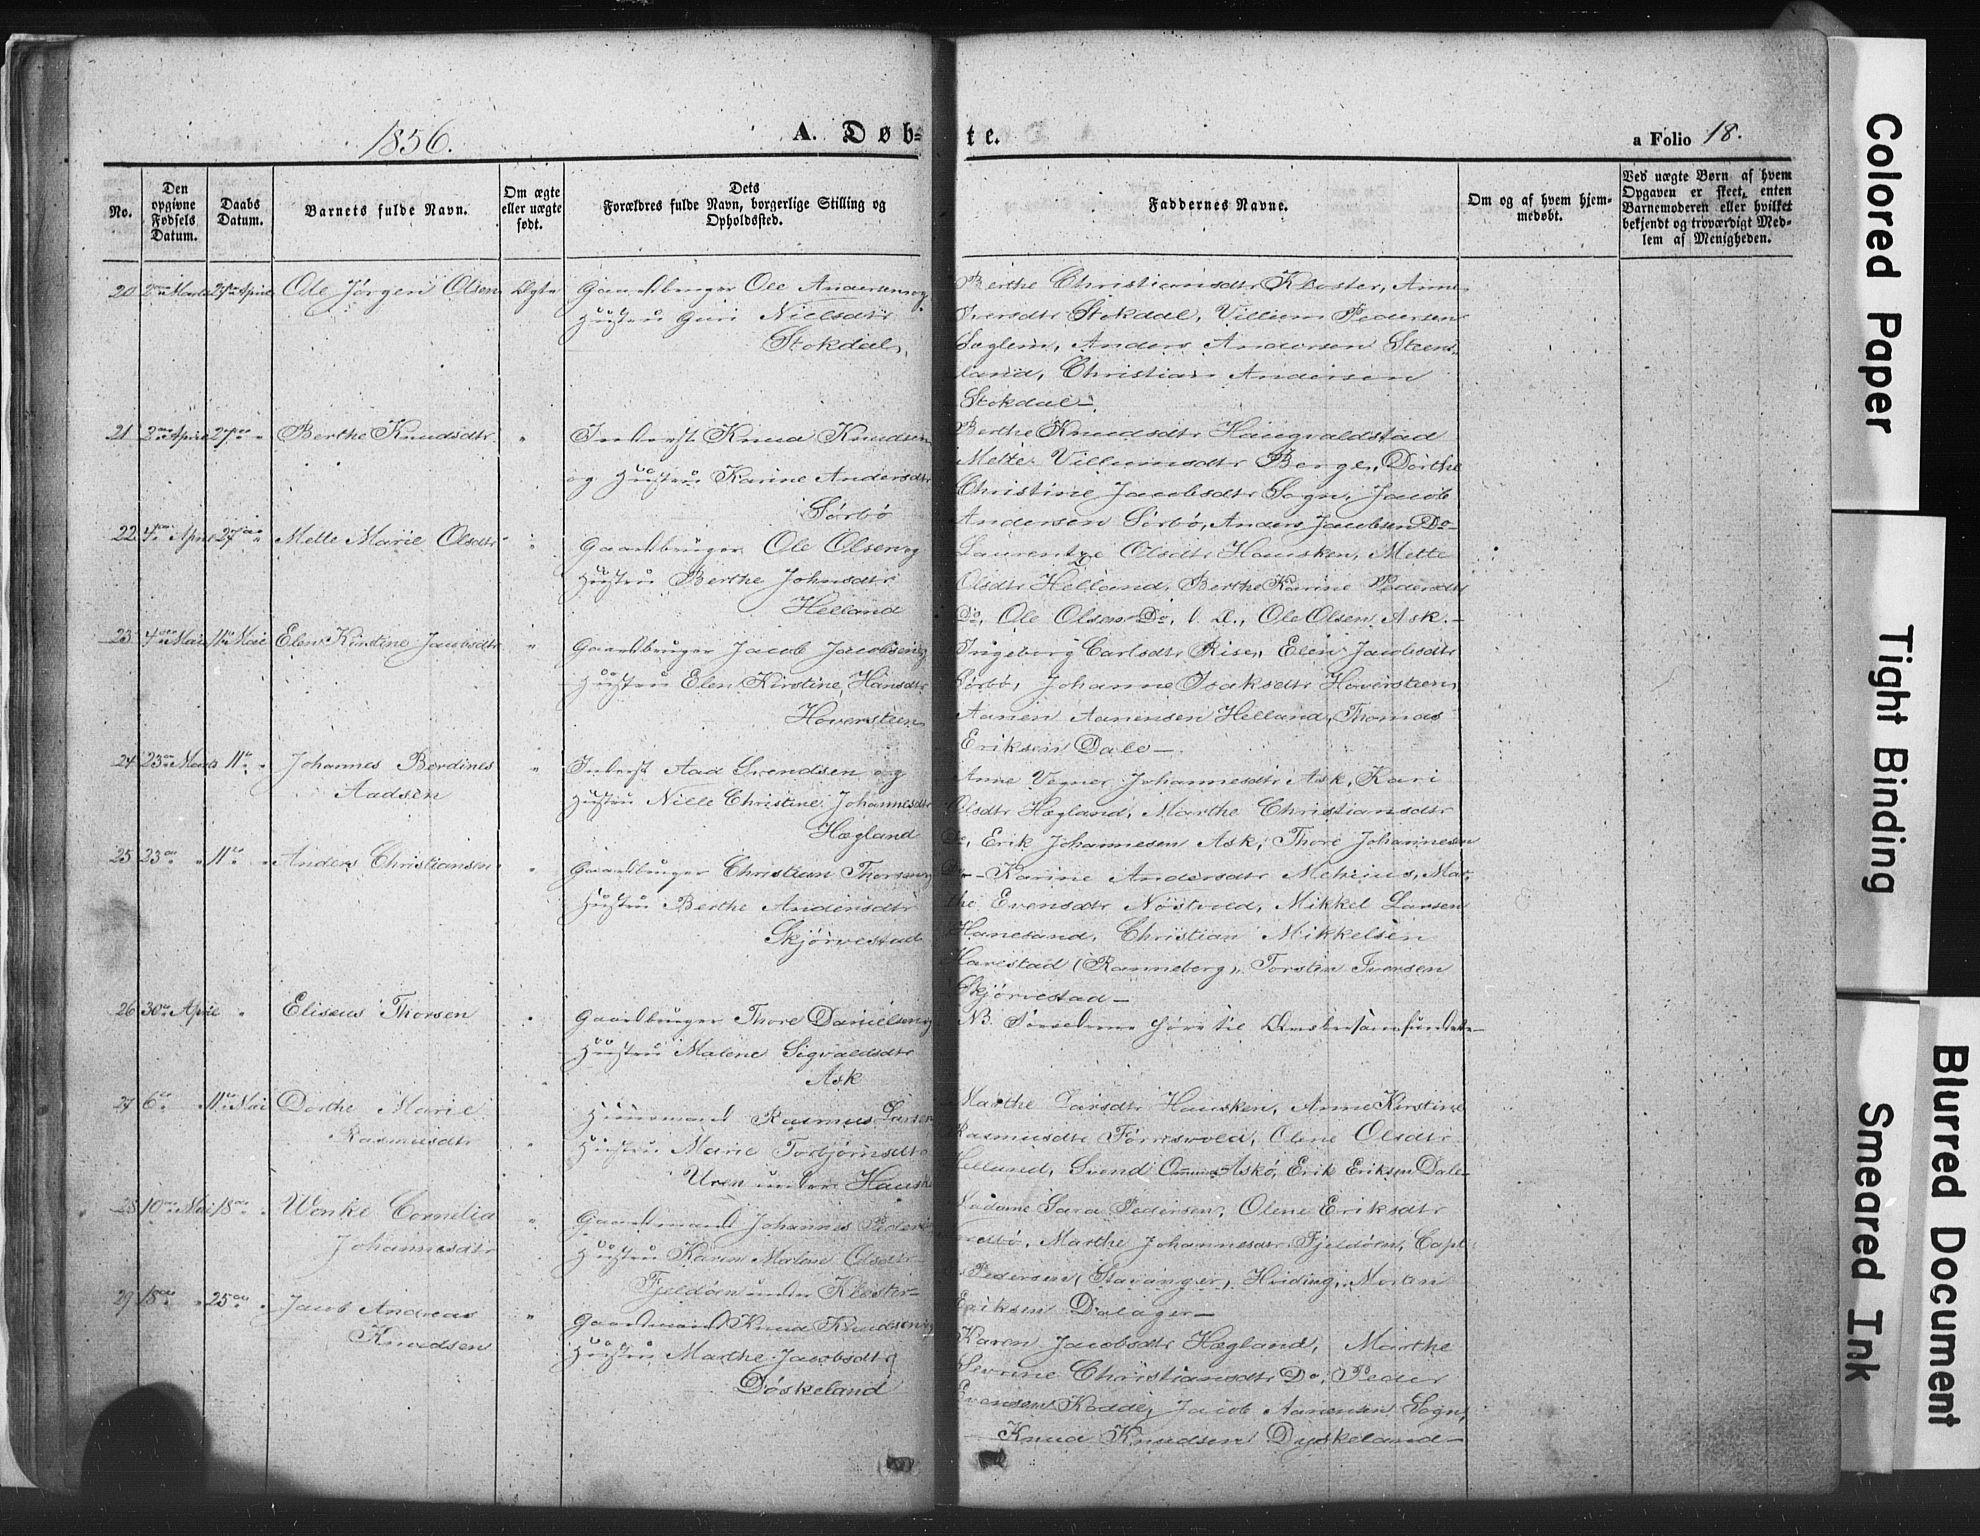 1856.
A. Døb-
te.
a Folio 18.
No.
Den opgivne Fødsels Datum.
Daabs Datum.
Barnets fulde Navn.
Om ægte eller uægte født.
Dets Forældres fulde Navn, borgerlige Stilling og Opholdssted.
Faddernes Navne.
Om og af hvem hjemmedøbt.
Ved uægte Børn af hvem Opgaven er skeet, enten Barnemoderen eller hvilket bekjendt og troværdigt Medlem af Menigheden.
20 27de April Ole Jørgen Olsen Ægte Gaardbruger Ole Andersen og
Hustru Guri Nielsdtr
Stokdal,
Berthe Christiansdtr Kloster, Anne
Iversdtr Stokdal, Villum Pedersen
Anders Andersen Steens-
land, Christian Andersen
Stokdal –
21 April 27de " Berthe Knudsdtr " Inderst Knud Knudsen
og Hustru Karine Andersdtr
Sørbø
Berthe Knudsdtr Haugvaldstad
Mette Villumsdtr Berge, Dorthe
Christine Jacobsdtr Sogn, Jacob
Andersen Sørbø, Anders Jacobsen Do –
22 4de April 27de " Mette Marie Olsdtr " Gaardbruger Ole Olsen og
Hustru Berthe Johnsdtr
Helland
Laurentze Olsdtr Hausken, Mette
Olsdtr Helland, Berthe Karine Pedersdtr
Do, Ole Olsen Do, Ole Olsen Ask. –
23 4de 11te Mai Elen Kirstine Jacobsdtr " Gaardbruger Jacob Jacobsen og
Hustru Elen Kirstine Hansdtr
Hoversteen
Ingeborg Carlsdtr Rise, Elen Jacobsdtr
Sørbø, Johanne Isaksdtr Hoversteen,
Aanen Aanensen Helland, Thomas
Eriksen Dale –
24 23de Marts 11te " Johannes Berdines
Aadsen
" Inderst Aad Svendsen og
Hustru Nille Christine Johannesdtr
Hægland
Anne Johannesdtr Ask, Kari
Olsdtr Hægland, Marthe Christiansdtr
Do, Erik Johannesen Ask, Thore Johannesen
Do –
25 23de " 11te " Anders Christiansen " Gaardbruger Christian Thorsen og
Hustru Berthe Andersdtr
Skjørvestad
Karine Andersdtr Meheius, Mar-
the Evensdtr Nøstvold, Mikkel Larsen
Hanesand, Christian Mikkelsen
Harestad (Ranneberg), Torsten Iversen
Skjørvestad –
26 30te April " Eliseus Thorsen " Gaardbruger Thore Danielsen og
Hustru Malene Sigvaldsdtr
Ask
NB. Forældrene høre til
27 6te 11te Mai Dorthe Marie
Rasmusdtr
" Huusmand Rasmus Larsen
Hustru Marie Torbjørnsdtr
Uren under Hausken
Marthe Larsdtr Hausken, Anne Kirstine
Rasmusdtr Førrisvold, Olene Olsdtr
Helland, Svend Askø, Erik Eriksen Dale –
28 10de Mai 18de " Wenke Cornelia
Johannesdtr
" Gaardmand Johannes Pedersen
Hustru Karen Malene Olsdtr
Fjeldøen under Kloster –
Madame Sara Pedersen, Olene Eriksdtr
Marthe Johannesdtr Fjeldøen, Capt.
Pedersen (Stavanger), Hviding, Morten
Eriksen Dalager –
29 " 25de " Jacob Andreas
Knudsen
" Gaardmand Knud Knudsen og
Hustru Marthe Jacobsdtr
Døskeland
Karen Jacobsdtr Hægland, Marthe
Severine Christiansdtr Do, Peder
Evensen Jacob Aanensen Sogn,
Knud Knudsen Dyskeland –
Colored Paper
Tight Binding
Blurred Document
Smeared Ink